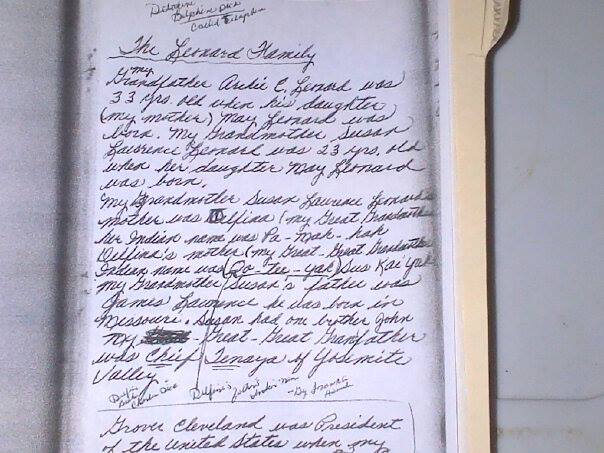 Delphin Dick
Called
The Leonard Family
my
Grandfather Archie C. Leonard was
33 yrs. old when his daughter
(my mother) May Leonard was
born. My Grandmother Susan
Lawrence Leonard was 23 yrs. old
when her daughter May Leonard
was born.
My Grandmother Susan Lawrence Leonard's
mother was Delfina (my Great Grandmother
her Indian name was Pa-Mah-hah
Delfina's mother (my Great-Great Grandmother
Indian name was Sus Kai
my Grandmother Susan's father was
James Lawrence he was born in
Missouri. Susan had one brother John
My -Great-Great Grandfather
was Chief Tenaya of Yosemite
Valley
Delfina's
Grover Cleveland was President
of the United States when my